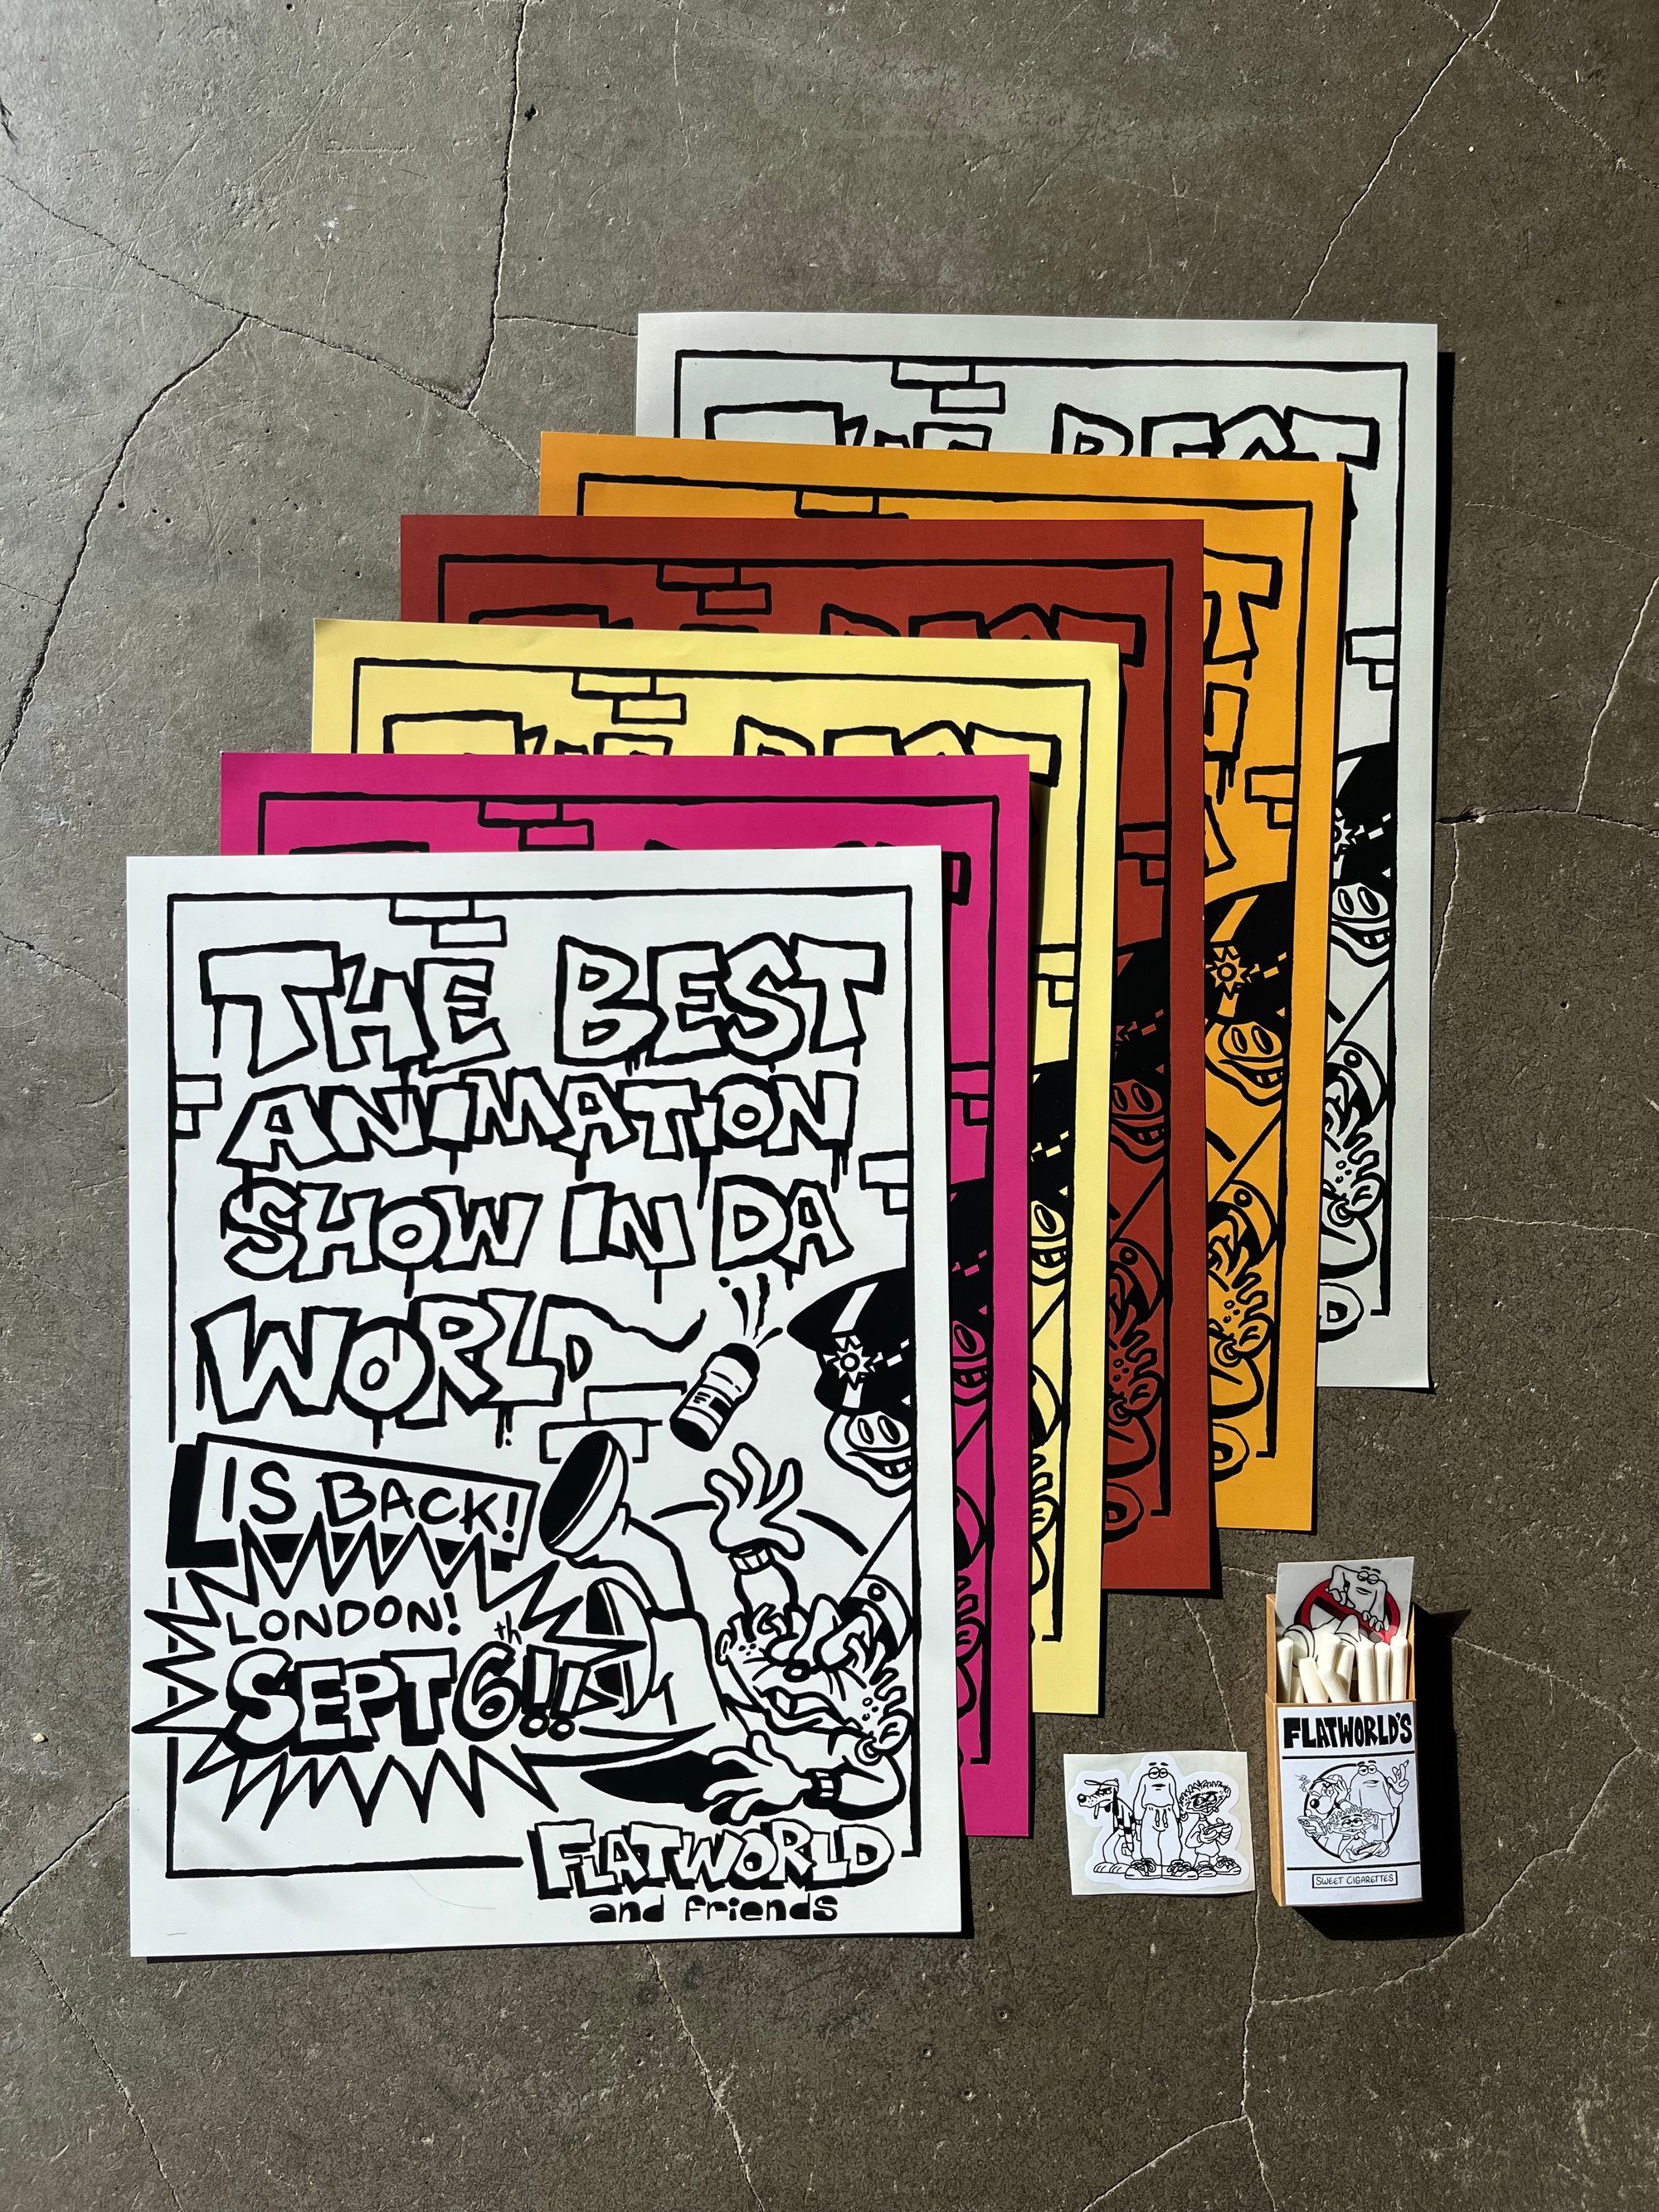 THE BEST
THE BEST
THE BEST
THE BEST
ANIMATION
SHOW IN DA
WORLD
IS BACK!
LONDON!
SEPT 6th!!
FLATWORLD
and friends
FLATWORLD'S
SWEET CIGARETTES